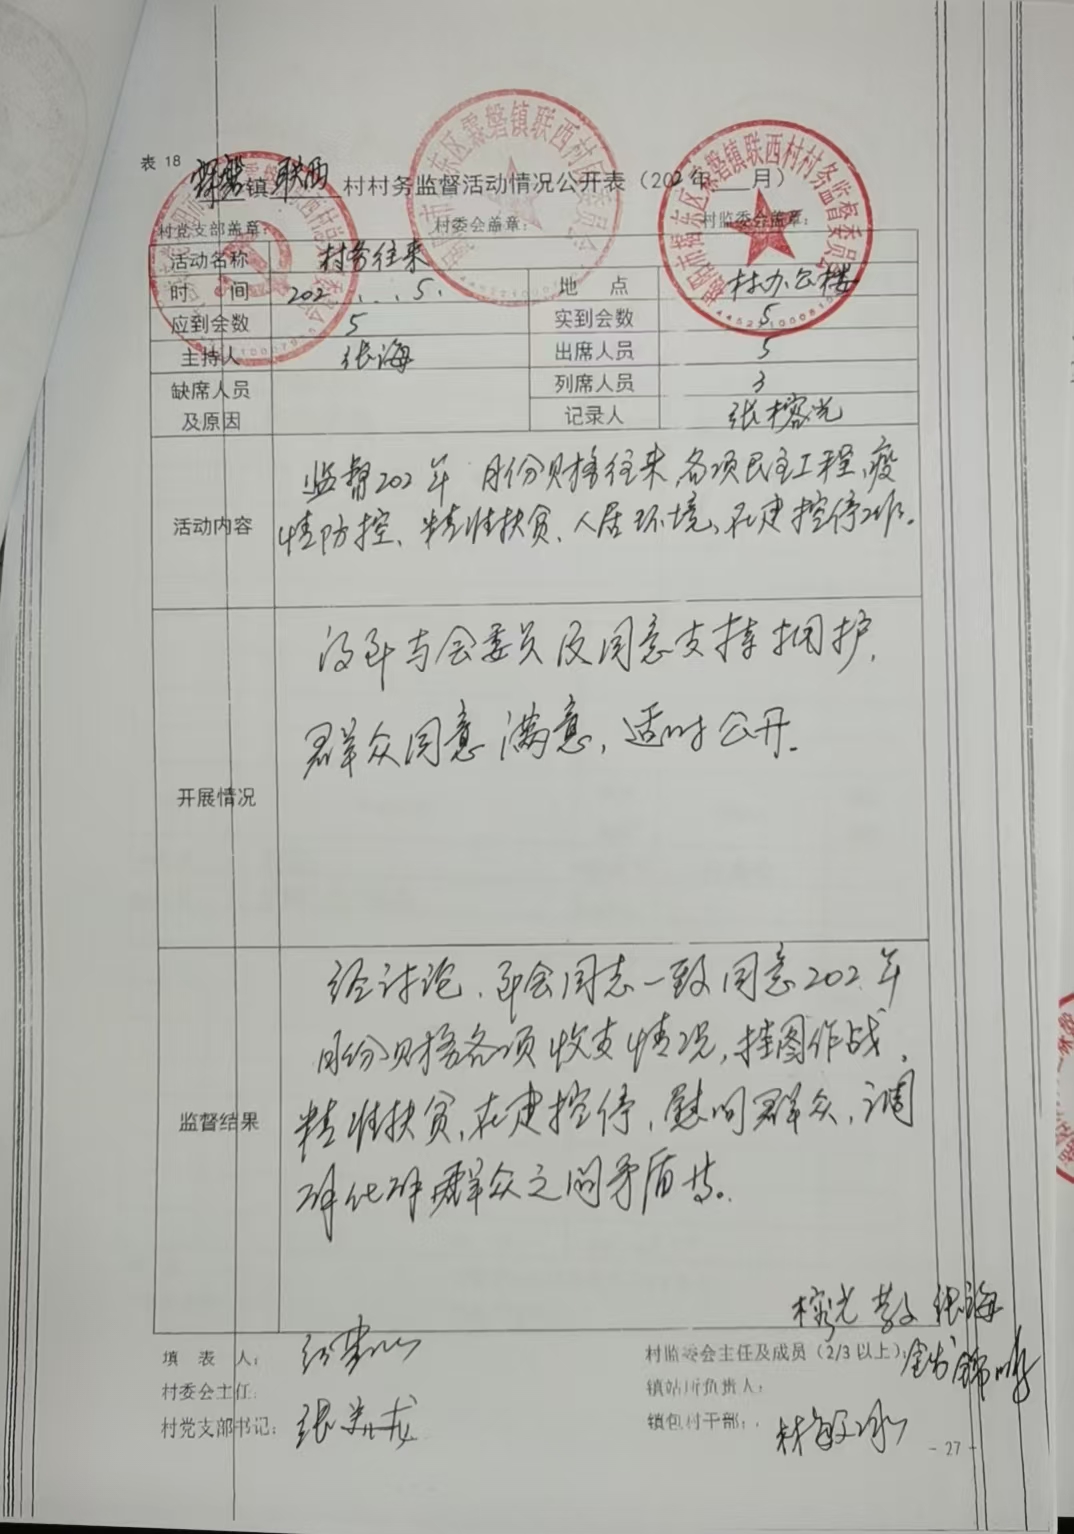 表 18
霖磐镇联西村村务监督活动情况公开表（202 年___月）
村党支部盖章： 村委会盖章： 村监委会盖章：
活动名称 村务往来
时 间 202 . . . 5. 地 点 村办公楼
应到会数 5 实到会数 5
主持人 张海 出席人员 5
缺席人员及原因 列席人员 3
记录人 张榕光
活动内容
监督202 年 月份财务往来、各项民主工程、疫
情防控、精准扶贫、人居环境、在建控停工作。
开展情况
与会委员及同意支持拥护，
群众同意满意，适时公开。
监督结果
经讨论，与会同志一致同意202 年
月份财务各项收支情况，挂图作战，
精准扶贫，在建控停，慰问群众，调
解化解群众之间矛盾等。
榕光 张海
填 表 人： 村监委会主任及成员（2/3 以上）：
村委会主任： 镇站所负责人：
村党支部书记： 张 龙 镇包村干部： 林敏冰
- 27 -
霖磐镇联西村村民委员会
揭阳市揭东区霖磐镇联西村村务监督委员会